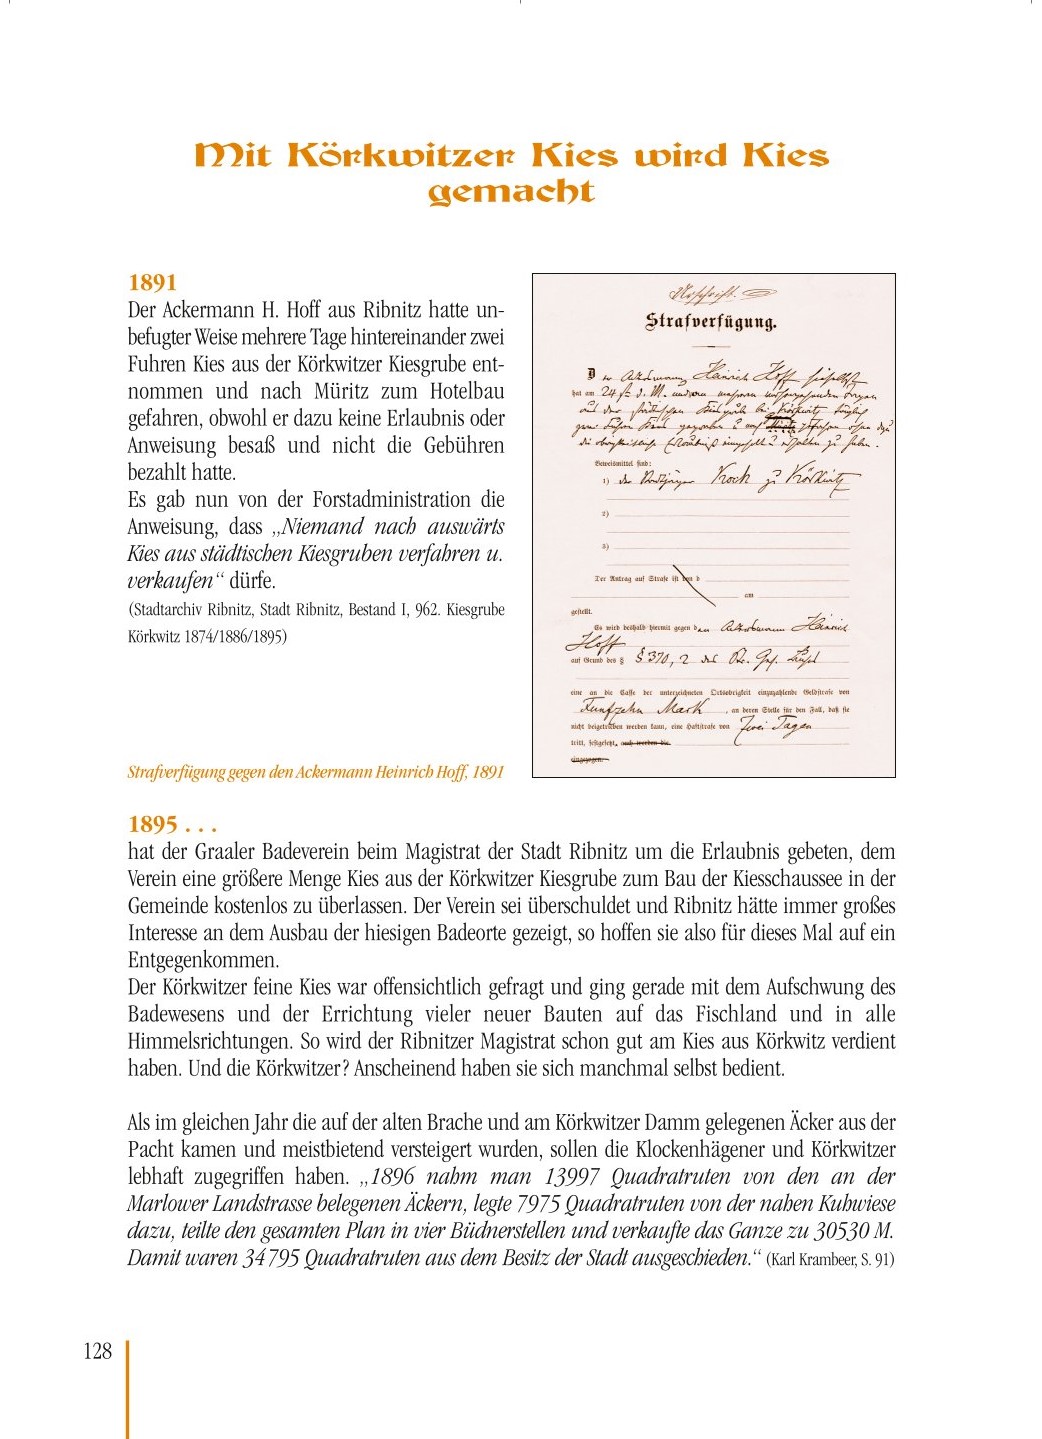 Mit Körkwitzer Kies wird Kies
gemacht
1891
Der Ackermann H. Hoff aus Ribnitz hatte un-
befugter Weise mehrere Tage hintereinander zwei
Fuhren Kies aus der Körkwitzer Kiesgrube ent-
nommen und nach Müritz zum Hotelbau
gefahren, obwohl er dazu keine Erlaubnis oder
Anweisung besaß und nicht die Gebühren
bezahlt hatte.
Es gab nun von der Forstadministration die
Anweisung, dass „Niemand nach auswärts
Kies aus städtischen Kiesgruben verfahren u.
verkaufen“ dürfe.
(Stadtarchiv Ribnitz, Stadt Ribnitz, Bestand I, 962. Kiesgrube
Körkwitz 1874/1886/1895)
Strafverfügung gegen den Ackermann Heinrich Hoff, 1891
Strafverfügung.
Der Ackermann Heinrich Hoff hieselbst
hat am 24
Beweismittel sind:
1) der Krock zu Körkwitz
2)
3)
Der Antrag auf Strafe ist von d
am
gestellt.
Es wird deshalb hiermit gegen den Ackermann Heinrich
Hoff
auf Grund des § § 370, 2 des
eine an die Casse der unterzeichneten Ortsobrigkeit einzuzahlende Geldstrafe von
Funfzehn Mark, an deren Stelle für den Fall, daß sie
nicht beigetrieben werden kann, eine Haftstrafe von Zwei Tagen
tritt, festgesetzt, auch werden die
eingezogen.
1895 . . .
hat der Graaler Badeverein beim Magistrat der Stadt Ribnitz um die Erlaubnis gebeten, dem
Verein eine größere Menge Kies aus der Körkwitzer Kiesgrube zum Bau der Kiesschaussee in der
Gemeinde kostenlos zu überlassen. Der Verein sei überschuldet und Ribnitz hätte immer großes
Interesse an dem Ausbau der hiesigen Badeorte gezeigt, so hoffen sie also für dieses Mal auf ein
Entgegenkommen.
Der Körkwitzer feine Kies war offensichtlich gefragt und ging gerade mit dem Aufschwung des
Badewesens und der Errichtung vieler neuer Bauten auf das Fischland und in alle
Himmelsrichtungen. So wird der Ribnitzer Magistrat schon gut am Kies aus Körkwitz verdient
haben. Und die Körkwitzer? Anscheinend haben sie sich manchmal selbst bedient.
Als im gleichen Jahr die auf der alten Brache und am Körkwitzer Damm gelegenen Äcker aus der
Pacht kamen und meistbietend versteigert wurden, sollen die Klockenhägener und Körkwitzer
lebhaft zugegriffen haben. „1896 nahm man 13997 Quadratruten von den an der
Marlower Landstrasse belegenen Äckern, legte 7975 Quadratruten von der nahen Kuhwiese
dazu, teilte den gesamten Plan in vier Büdnerstellen und verkaufte das Ganze zu 30530 M.
Damit waren 34795 Quadratruten aus dem Besitz der Stadt ausgeschieden.“ (Karl Krambeer, S. 91)
128